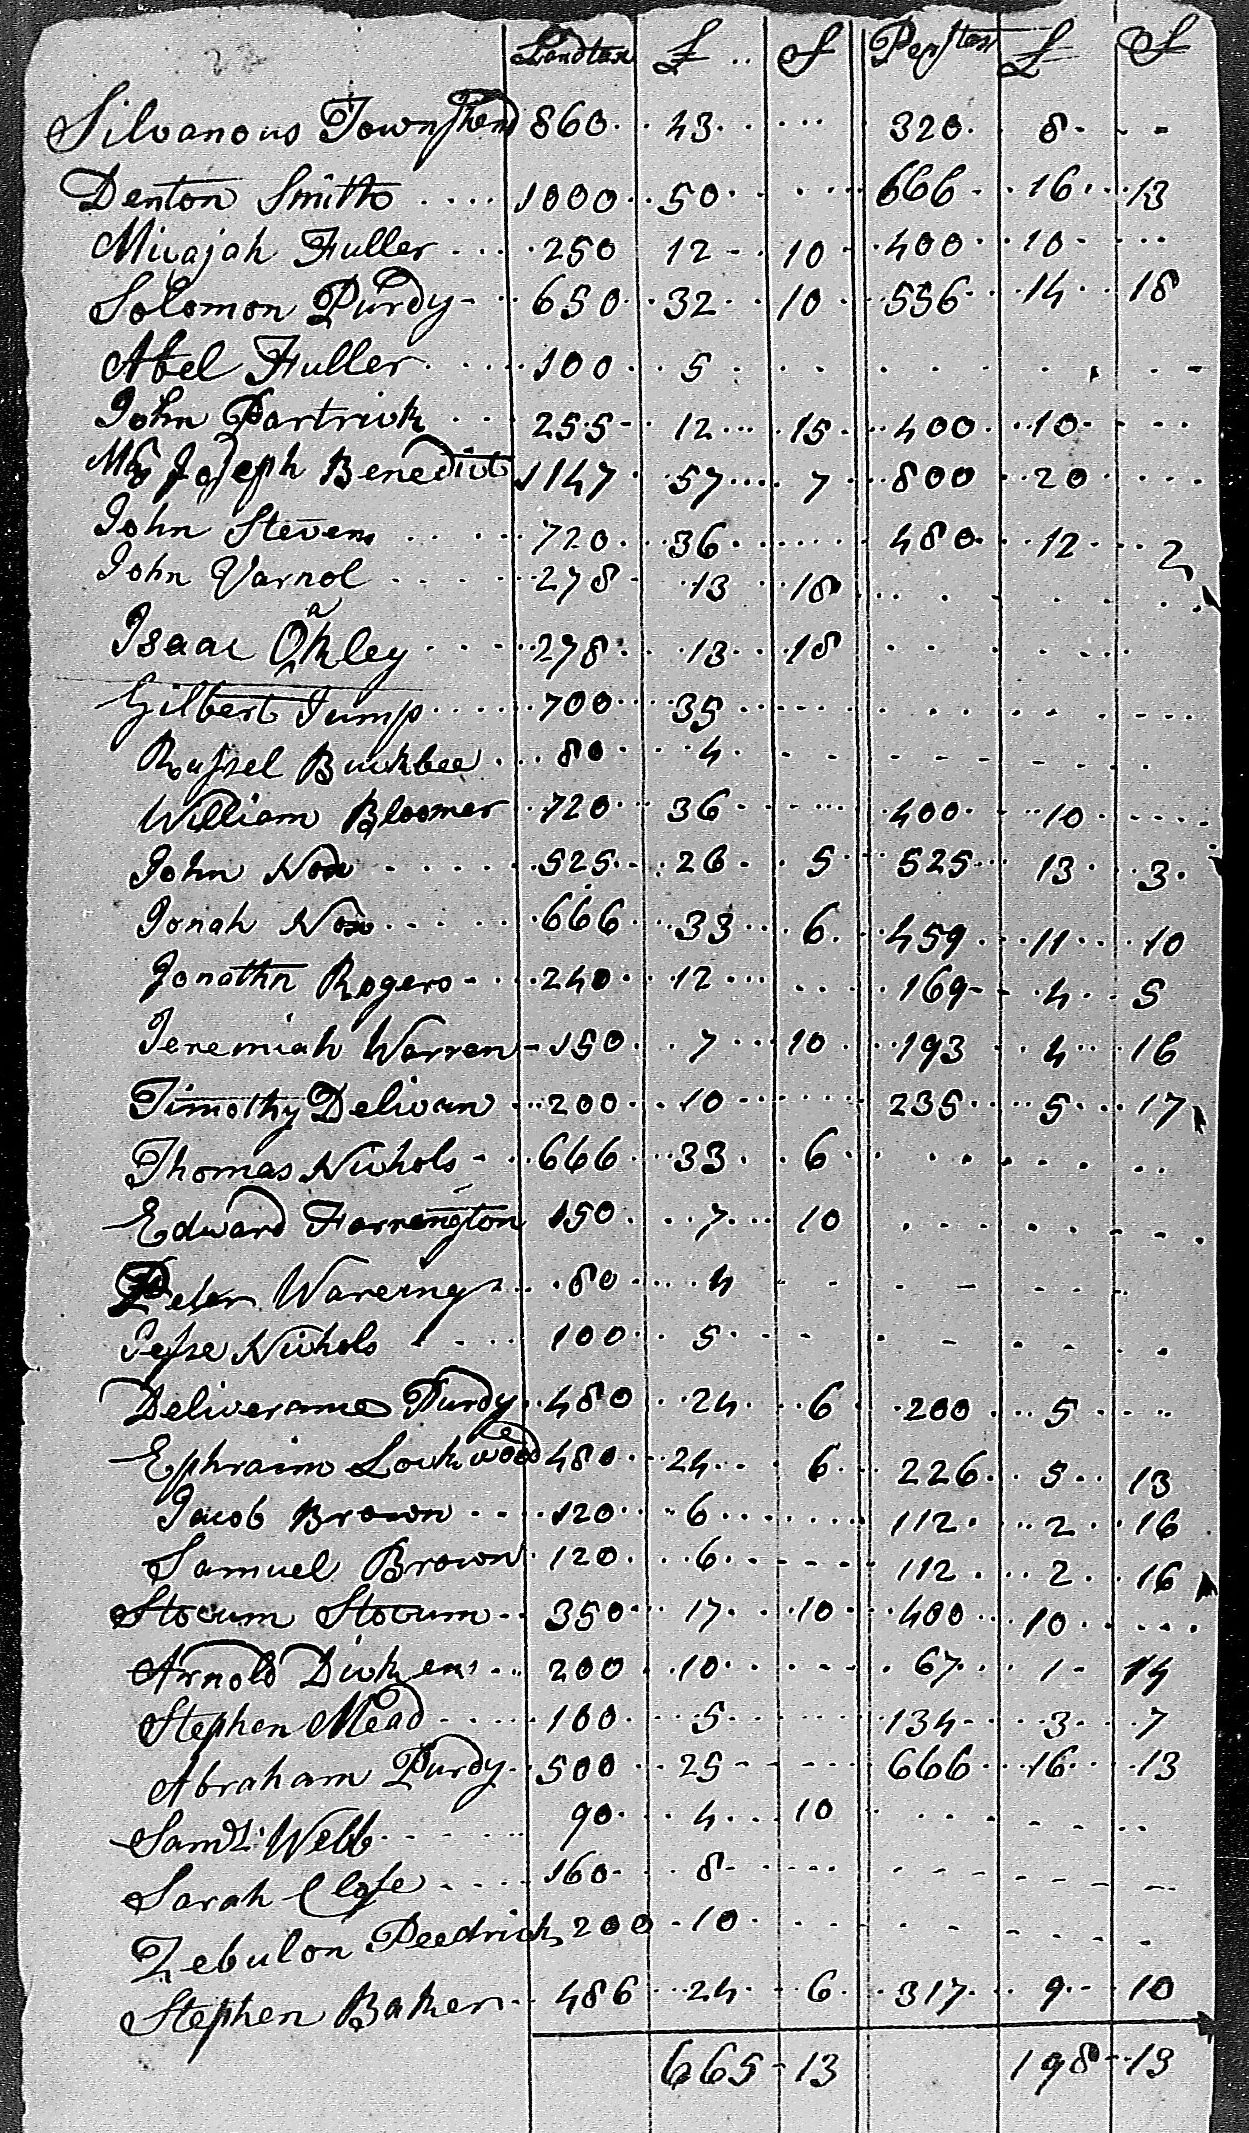 Landtax £ S Perstax £ S
Silvanous Townshend 860 43 320 8
Denton Smith 1000 50 666 16 13
Micajah Fuller 250 12 10 400 10
Solomon Purdy 650 32 10 556 14 18
Abel Fuller 100 5
John Partrick 255 12 15 400 10
Joseph Benedict 1147 57 7 800 20
John Stevens 720 36 480 12 2
John Varnol 278 13 18
Isaac Oakley 278 13 18
Gilbert Jump 700 35
Russel Buckbee 80 4
William Bloomer 720 36 400 10
John Nox 525 26 5 525 13 3
Jonah Nox 666 33 6 459 11 10
Jonathn Rogers 240 12 169 4 5
Jeremiah Warren 150 7 10 193 4 16
Timothy Delivan 200 10 235 5 17
Thomas Nichols 666 33 6
Edward Farrington 150 7 10
Peter Wareing 80 4
Jesse Nichols 100 5
Deliverance Purdy 480 24 6 200 5
Ephraim Lockwood 480 24 6 226 5 13
Jacob Brown 120 6 112 2 16
Samuel Brown 120 6 112 2 16
Slocum Slocum 350 17 10 400 10
Arnold Dickens 200 10 67 1 14
Stephen Mead 100 5 134 3 7
Abraham Purdy 500 25 666 16 13
Saml Webb 90 4 10
Sarah Close 160 8
Zebulon Peedrick 200 10
Stephen Baker 486 24 6 317 9 10
665 13 198 13